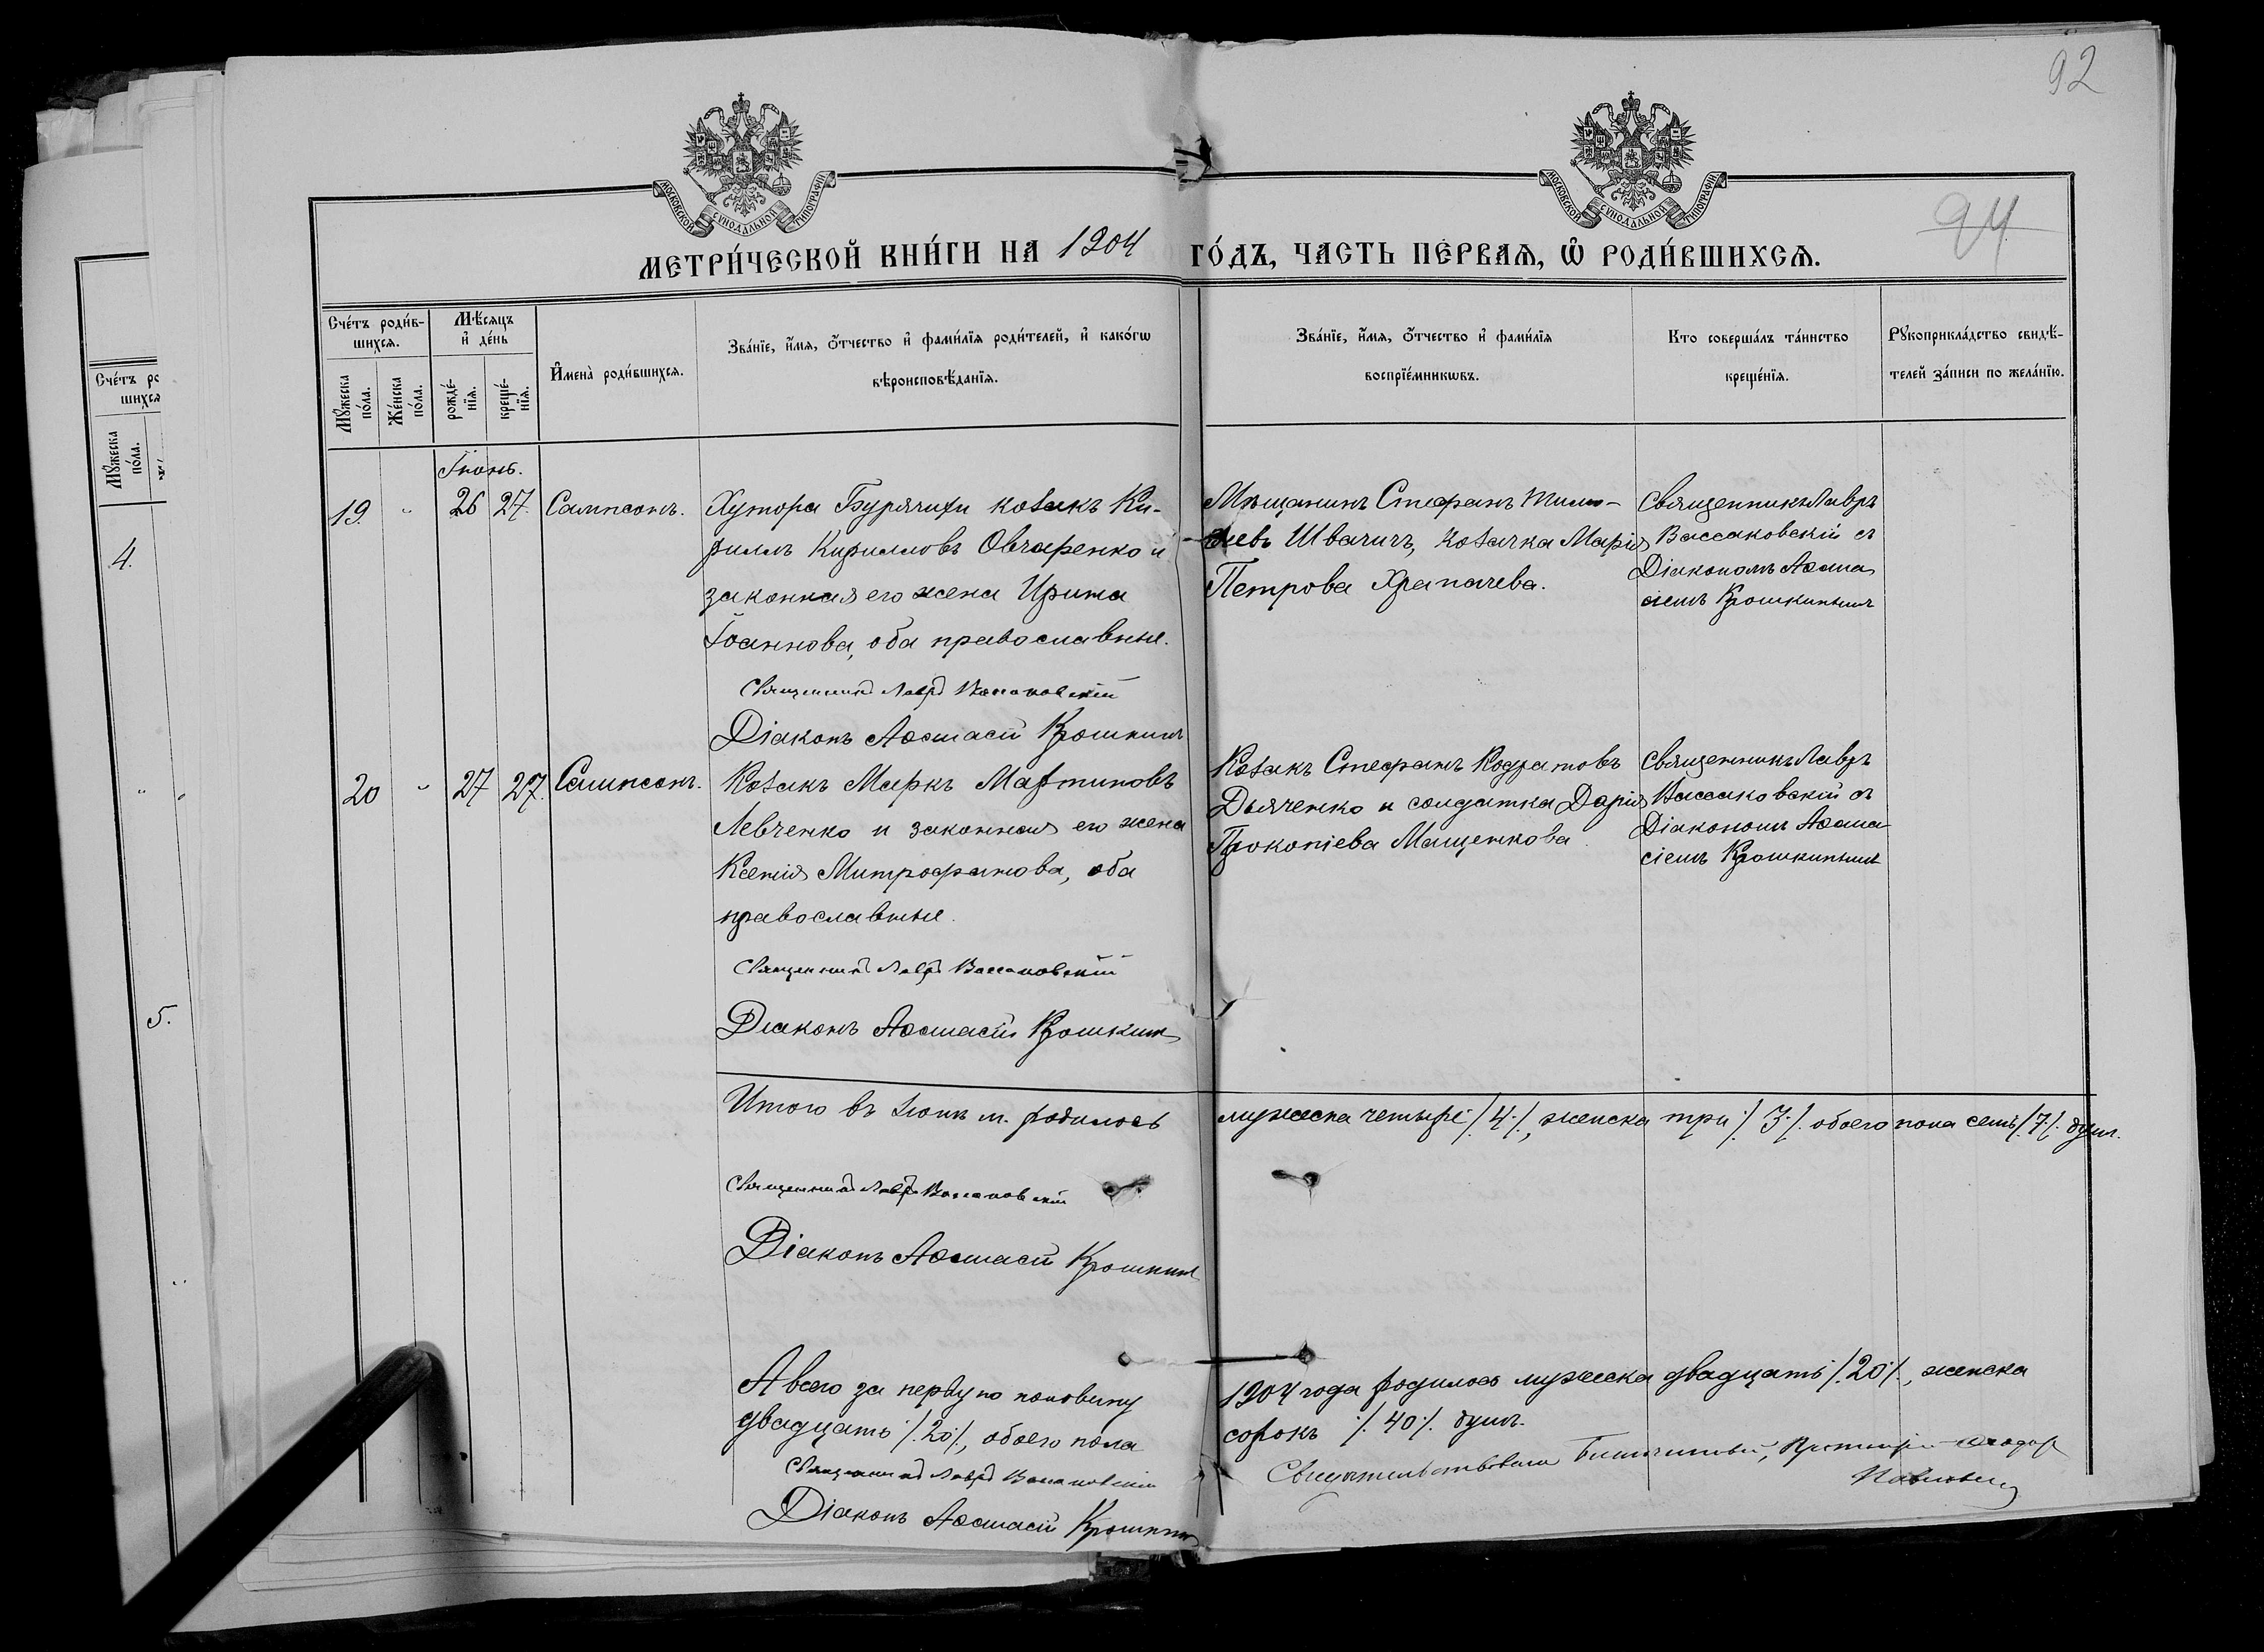 92
94
МОСКОВСКОЙ СѴНОДАЛЬНОЙ ТИПОГРАФІИ
МОСКОВСКОЙ СѴНОДАЛЬНОЙ ТИПОГРАФІИ
МЕТРИ́ЧЕСКОЙ КНИ́ГИ НА 1904 ГО́ДЪ, ЧАСТЬ ПЕ́РВАѦ, Ѡ҆ РОДИ́ВШИХСѦ.
Сче́тъ роди́в-
шихсѧ.
Мѣ́сѧцъ
и҆ де́нь
И҆мена̀ роди́вшихсѧ.
Зва́нїе, и҆́мѧ, ѻ҆́тчество и҆ фами́лїѧ роди́телей, и҆ како́гѡ
вѣроисповѣ́данїѧ.
Зва́нїе, и҆́мѧ, ѻ҆́тчество и҆ фами́лїѧ
воспрїе́мникѡвъ.
Кто соверша́лъ та́инство
креще́нїѧ.
Рꙋкоприкла́дство свидѣ́-
телей за́писи по жела́нїю.
Мꙋ́жеска
по́ла.
Же́нска
по́ла.
рожде́-
нїѧ.
креще́-
нїѧ.
Сче́тъ ро
шихсѧ
Мꙋ́жеска
по́ла.
4.
5.
Іюнь.
19. " 26 27. Сампсонъ.
Хутора Бурячихи козакъ Ки-
риллъ Кирилловъ Овчаренко и
законная его жена Ирина
Іоаннова, оба православные.
Священникъ Лавръ Вассаковскій
Діаконъ Аѳанасій Крошкинъ
Мѣщанинъ Стефанъ Тимо-
ѳеевъ Швачичъ, козачка Марія
Петрова Храпачева.
Священникъ Лавръ
Вассаковскій съ
Діакономъ Аѳана
сіемъ Крошкинымъ
20 " 27 27. Сампсонъ.
Козакъ Маркъ Мартиновъ
Левченко и законная его жена
Ксенія Митрофанова, оба
православные.
Священникъ Лавръ Вассаковскій
Діаконъ Аѳанасій Крошкинъ
Козакъ Стефанъ Кодратовъ
Дьяченко и солдатка Дарія
Прокопіева Мащенкова.
Священникъ Лавръ
Вассаковскій съ
Діакономъ Аѳана
сіемъ Крошкинымъ
Итого въ Іюнѣ м. родилось мужеска четыре /.4./, женска три /.3./ обоего пола семь /.7./ душъ.
Священникъ Лавръ Вассаковскій
Діаконъ Аѳанасій Крошкинъ
А всего за первую половину 1904 года родилось мужеска двадцать /.20./, женска
двадцать /.20./, обоего пола сорокъ /.40./ душъ.
Священникъ Лавръ Вассаковскій
Діаконъ Аѳанасій Крошкинъ
Протоіерей